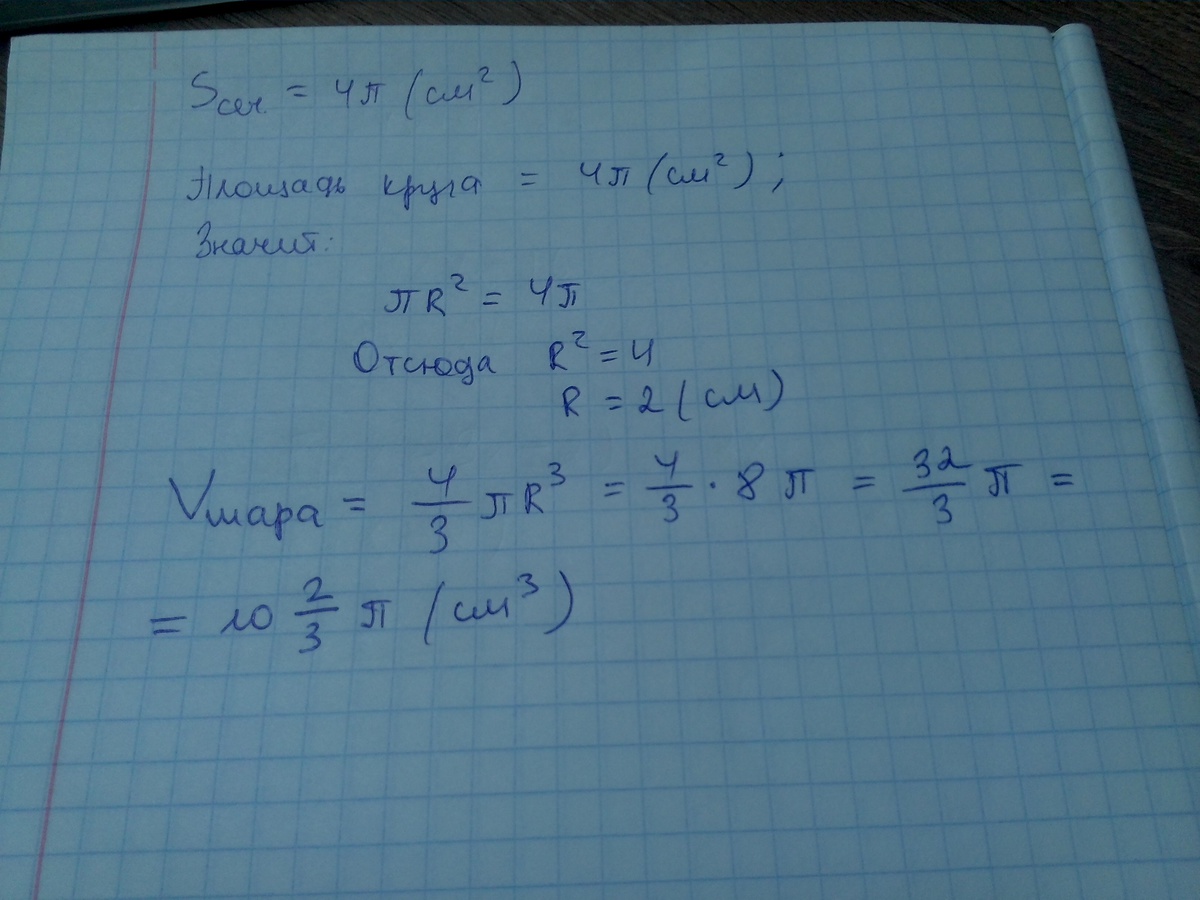 Sсеч. = 4π (см²)
Площадь круга = 4π (см²);
Значит:
πR² = 4π
Отсюда R² = 4
R = 2 (см)
Vшара = 4/3 πR³ = 4/3 · 8π = 32/3 π =
= 10 2/3 π (см³)